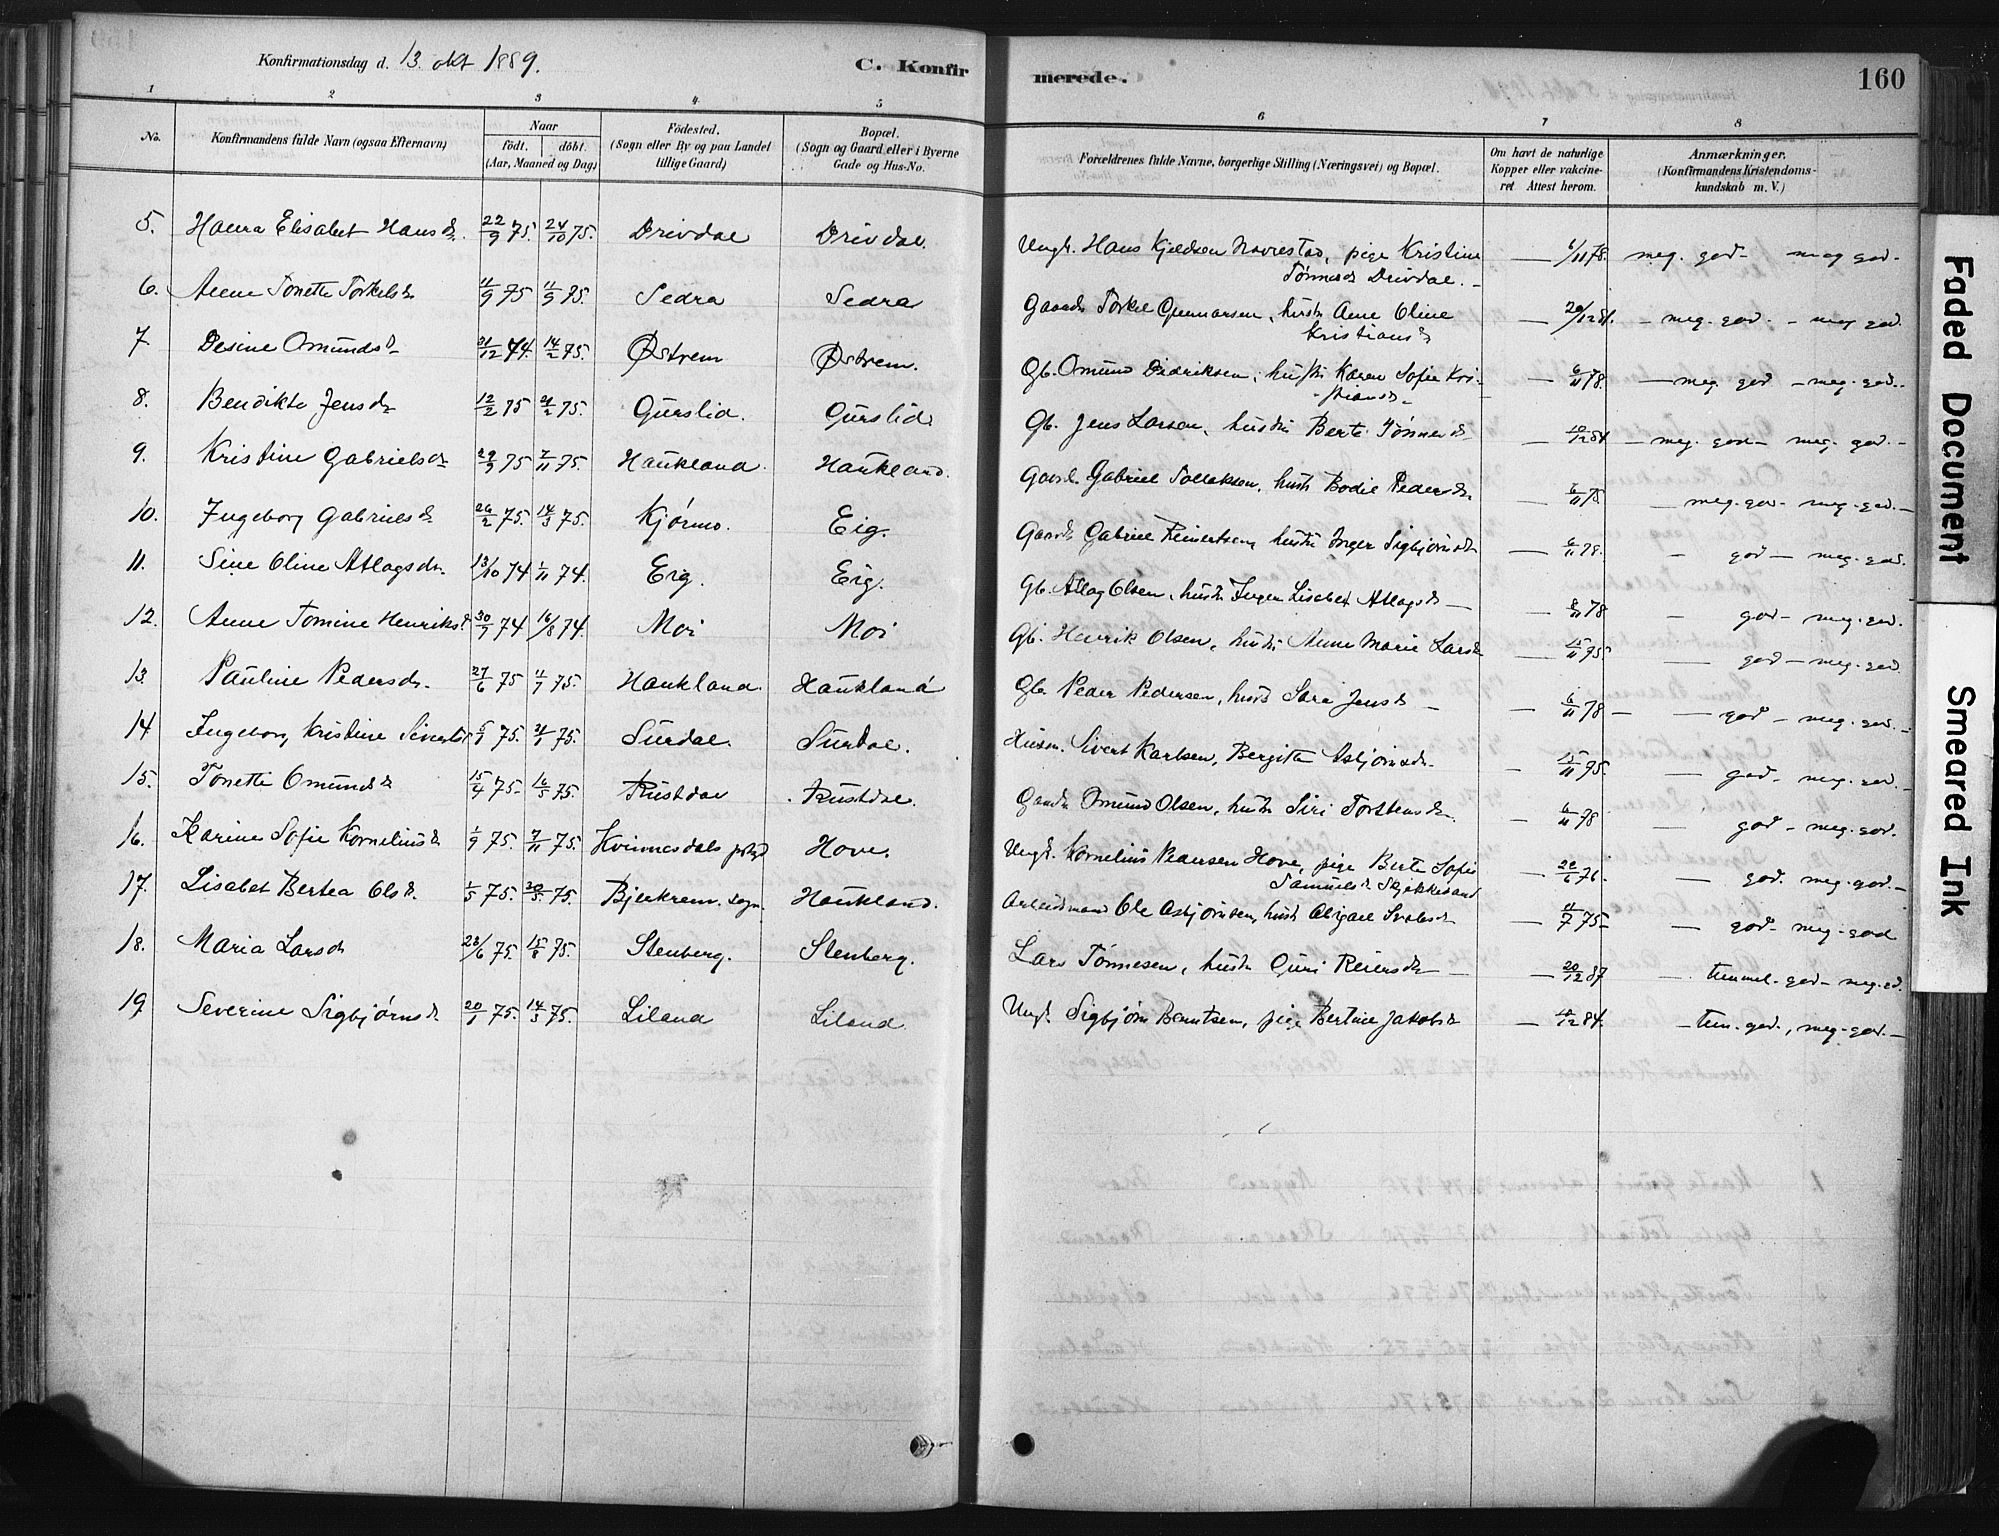 Konfirmationsdag d. 13 okt 1889.
C. Konfirmerede.
160
1 2 3 4 5 6 7 8
No.
Konfirmandens fulde Navn (ogsaa Efternavn)
Naar
födt. döbt.
(Aar, Maaned og Dag)
Födested.
(Sogn eller By og paa Landet
tillige Gaard)
Bopæl.
(Sogn og Gaard eller i Byerne
Gade og Hus-No.
Forældrenes fulde Navne, borgerlige Stilling (Næringsvei) og Bopæl.
Om havt de naturlige
Kopper eller vakcine-
ret Attest herom.
Anmærkninger.
(Konfirmandens Kristendoms-
kundskab m. V.)
5. Hanna Elisabet Hansdr. 22/9 75. 24/10 75. Drivdal Drivdal Ungk. Hans Kjeldsen Navrestad, pige Kristine — 6/11 78. meg. god — meg god.
Tønnesdr Drivdal. —
6. Anne Tonette Torkelsdr 11/9 75 75. Sedra Sedra Gaardb Torkel Gunnarsen, hustr Anne Oline — 20/12 81. — meg. god. — meg god.
Kristiansdr
7 Desine Omundsdr 21/12 74. 14/2 75. Østrem Østrem. Gb. Omund Didriksen, hustr Karen Sofie Kri- — 6/11 78. — meg. god — meg. god.
-stiansdr.
8. Bendikte Jensdr 12/2 75 21/2 75. Gurslid. Gurslid. Gb. Jens Larsen, hustr Berte Tønnesdr — 84 — meg. god — meg. god. —
9. Kristine Gabrielsdr 29/9 75 7/11 75. Haukland. Haukland. Gaardb Gabriel Tollaksen, hustr Bodil Pedersdr — 6/11 78 meg. god — meg. god. —
10. Ingeborg Gabrielsdr 26/2 75. 14/3 75. Kjørmo. Eig. Gaardb Gabriel Reinertsen, hustr Inger Sigbjørnsdr — 6/11 78. — god — meg. god.
11. Sine Oline Atlagsdr. 13/10 74 1/11 74. Eig. Eig. Gb. Atlag Olsen, hustr Inger Lisabet Atlagsdr — 78 — god — meg. god.
12. Anne Tomine Henriksdr 30/7 74 16/8 74. Moi Moi Gb. Henrik Olsen, hustr Anne Marie Larsdr — 15/11 75. — god — meg. god
13. Pauline Pedersdr. 27/6 75 11/7 75. Haukland. Haukland Gb. Peder Pedersen, hustr Sara Jensdr — 6/11 78 — — god — meg. god. —
14 Ingeborg Kristine Sivertsdr 5/1 75. 75. Surdal. Surdal. Husm. Sivert Karlsen, Bergitte Asbjørnsdr. — 15/11 75. — god — meg. god. —
15. Tonette Omundsdr 15/4 75 16/5 75. Rustdal Rustdal. Gaardb Omund Olsen, hustr Siri Torstensdr. — 6/11 78 — god — meg. god.
16. Karine Sofie Korneliusdr 1/9 75. 7/11 75. Kvinnesdals prgd Hove. Ungk. Kornelius Pedersen Hove, pige Berte Sofie — 22/6 76. — god. meg. god. —
Samuelsdr
17. Lisabet Bertea Olsdr. 1/5 75. 30/5 75. Bjerkrem sogn. Haukland. Arbeidsmand Ole Asbjørnsen, hustr Abigael — 11/7 75 — god — meg. god
18. Maria Larsdr 23/6 75. 15/8 75. Stenberg. Stenberg. Lars Tønnesen, hustr Guri Reiersdr — — 20/12 87 — temmel. god — meg. gd.
19 Severine Sigbjørnsdr 20/1 75. 14/3 75. Liland Liland Ungk. Sigbjørn Berntsen, pige Bertine Jakobsdr — 84. — tem. god, meg. god. —
Faded Document
Smeared Ink